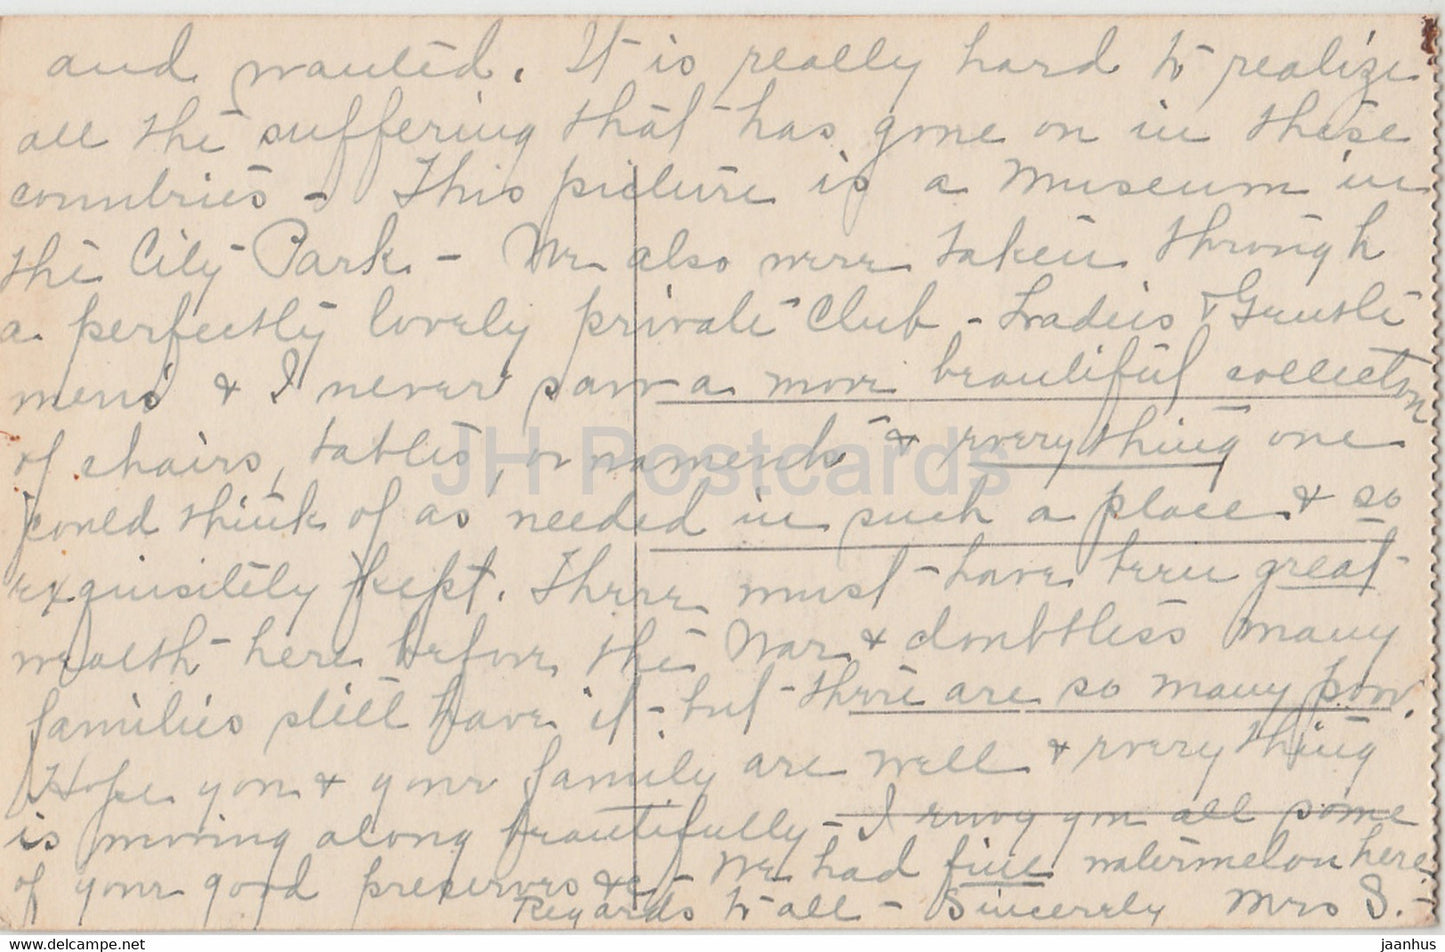 and wanted. It is really hard to realize
all the suffering that has gone on in these
countries - This picture is a Museum in
the City Park - We also were taken through
a perfectly lovely private Club - Ladies & Gentle
mens & I never saw a more beautiful collection
of chairs, tables, ornaments & everything one
could think of as needed in such a place & so
exquisitely kept. There must have been great
wealth here before the War & doubtless many
families still have it - but there are so many poor.
Hope you & your family are well & everything
is moving along beautifully - I envy you all some
of your good preserves &c - We had fine watermelon here
Regards to all - Sincerely Mrs S. -
JH Postcards
www.hippostcard.com
jaanhus